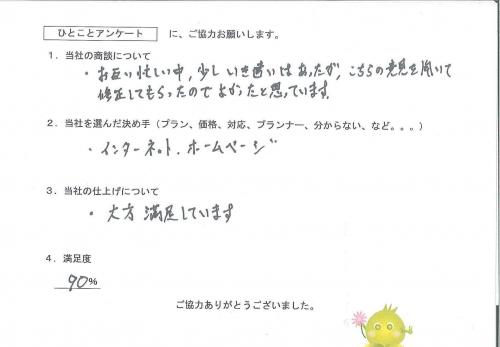 ひとことアンケート に、ご協力お願いします。
１．当社の商談について
・お互い忙しい中，少しいき違いはあったが，こちらの意見を聞いて
修正してもらったのでよかったと思っています．
２．当社を選んだ決め手（プラン、価格、対応、プランナー、分からない、など。。。）
・インターネット．ホームページ
３．当社の仕上げについて
・大方満足しています
４．満足度
90%
ご協力ありがとうございました。